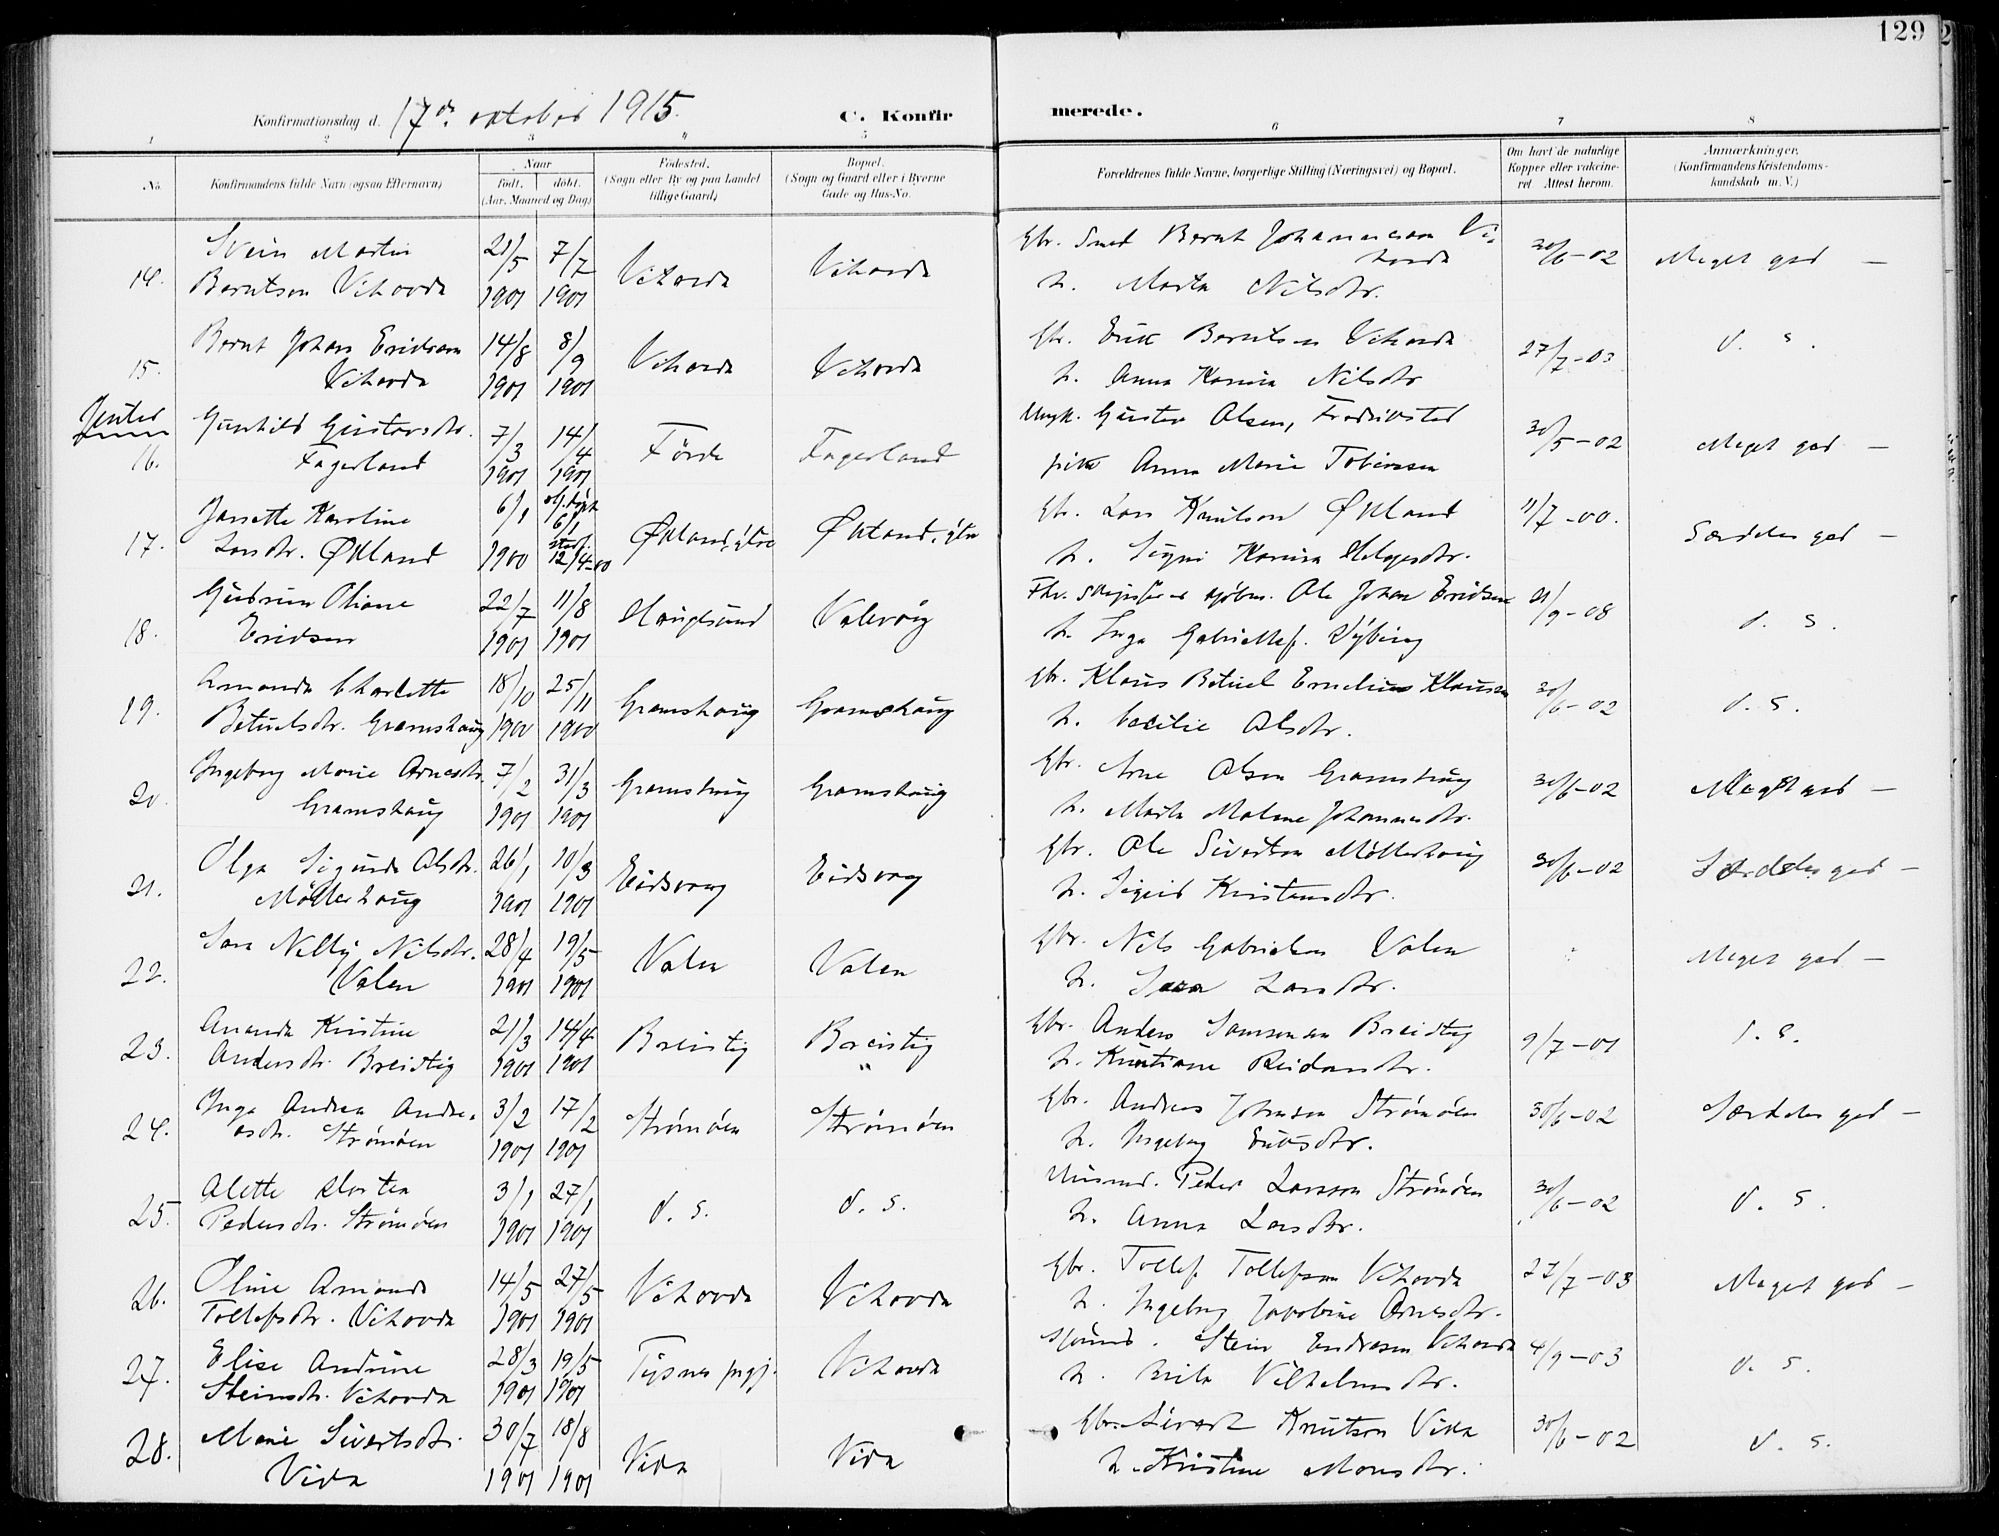 129
Konfirmationsdag d. 17de oktober 1915.
C. Konfirmerede.
1 2 3 4 5 6 7 8
No.
Konfirmandens fulde Navn (ogsaa Efternavn)
Naar
født. døbt.
(Aar, Maaned og Dag)
Fødested.
(Sogn eller By og paa Landet
tillige Gaard)
Bopæl.
(Sogn og Gaard eller i Byerne
Gade og Hus-No.
Forældrenes fulde Navne, borgerlige Stilling (Næringsvei) og Bopæl.
Om havt de naturlige
Kopper eller vakcine-
ret Attest herom.
Anmærkninger.
(Konfirmandens Kristendoms-
kundskab m. V.)
14. Svein Martin 21/5 7/7 Vihovda Vihovda Gbr. Smed Bernt Johannessen Vi- 30/6-02 Meget god —
Berntsen Vihovda 1901 1901 hovda
h. Marta Nilsdtr.
15. Bernt Johan Eriksen 14/8 8/9 Vihovda Vihovda Gbr. Erik Berntsen Vihovda 27/7-03 d. s.
Vihovda 1901 1901 h. Anna Karina Nilsdtr
Jenter
16. Gunhild Gustavsdtr. 7/3 14/4 Førde Fagerland Ungk. Gustav Olsen, Fredrikstad 30/5-02 Meget god —
Fagerland 1901 1901 pike Anna Marie Tobiassen
17. Jansette Karoline 6/1 6/1 Økland, ytre Økland, ytre Gbr. Lars Knutson Økland 11/7-00. Særdeles god —
Larsdtr. Økland 1900 12/4-00 h. Signi Karina Helgesdtr.
18. Gudrun Oliane 22/7 11/8 Haugesund Valevåg Ole Johan Eriksen 21/9-08 d. s.
Eriksen 1901 1901 h. Inga
19. Amanda Charlotte 18/10 25/11 Gramshaug Gramshaug Gbr. Klaus Betuel Ernelius Klausen 30/6-02 d. s.
Betuelsdtr. Gramshaug 1900 1900 h. Cecilie Olsdtr.
20. Ingeborg Marie Arnesdtr. 7/2 31/3 Gramshaug Gramshaug Gbr. Arne Olsen Gramshaug 30/6-02 Meget god —
Gramshaug 1901 1901 h. Marta Malene Johannesdtr.
21. Olga Sigunda Olsdtr. 26/1 10/3 Eidsvag Eidsvag Gbr. Ole Sivertsen Møllerhaug 30/6-02 Særdeles god —
Møllerhaug 1901 1901 h. Sigrid Kristensdtr.
22. Sara Nelly Nilsdtr. 28/4 19/5 Valen Valen Gbr. Nils Gabrielsen Valen Meget god —
Valen 1901 1901 h. Sara Larsdtr.
23. Amanda Kristine 21/3 14/4 Breistig Breistig Gbr. Anders Samsonsen Breistig 9/7-01 d. s.
Andersdtr. Breistig 1901 1901 " h. Kristiane Reidarsdtr.
24. Inga Andrea Andre- 3/2 17/2 Strømøen Strømøen Gbr. Andreas Johnsen Strømøen 30/6-02 Særdeles god —
asdtr. Strømøen 1901 1901 h. Ingeborg Eriksdtr.
25. Alette Marta 3/1 27/1 d. s. d. s. Husmd. Peder Larsson Strømøen 30/6-02 d. s.
Pedersdtr. Strømøen 1901 1901 h. Anna Larsdtr.
26. Oline Amanda 14/5 27/5 Vihovda Vihovda Gbr. Tollef Tollefsen Vihovda 27/7-03 Meget god —
Tollefsdtr. Vihovda 1901 1901 h. Ingeborg Jakobine Arnesdtr.
27. Elise Andrine 28/3 19/5 Tysnes prgj. Vihovda Sjømd. Stein Endresen Vihovda 4/9-03 d. s.
Steinsdtr. Vihovda 1901 1901 h. Brita Vilhelmsdtr.
28. Marie Sivertsdtr. 30/7 18/8 Vika Vika Gbr. Sivert Knutson Vika 30/6-02 d. s.
Vika 1901 1901 h. Kristine Monsdtr.